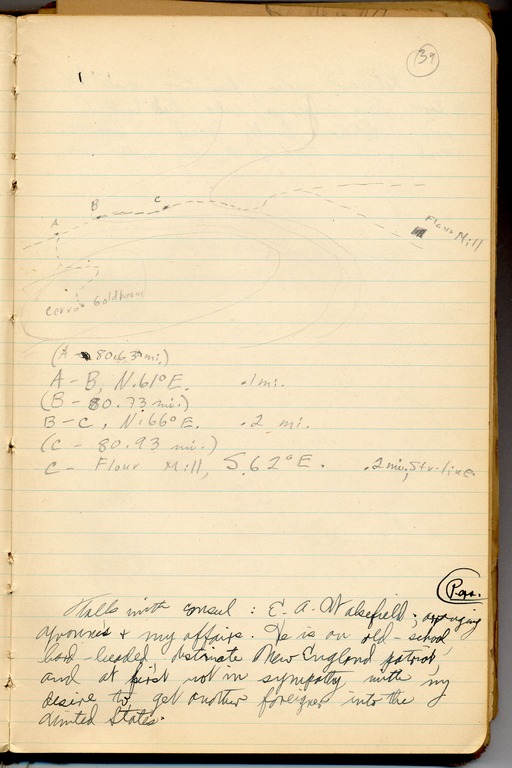 39
A
B
C
Flour Mill
Cerro Goldham
(A - 80.63 mi.)
A-B, N.61°E. .1 mi.
(B - 80.73 mi.)
B-C, N.66°E. .2 mi.
(C - 80.93 mi.)
C - Flour Mill, S.62°E. .2 mi, str-line
Pers.
Talls with consul : E. A. Wakefield; arranging
Yvonne's & my affairs. He is an old-school,
hard-headed, obstinate New England patriot,
and at first not in sympathy with my
desire to get another foreigner into the
United States.